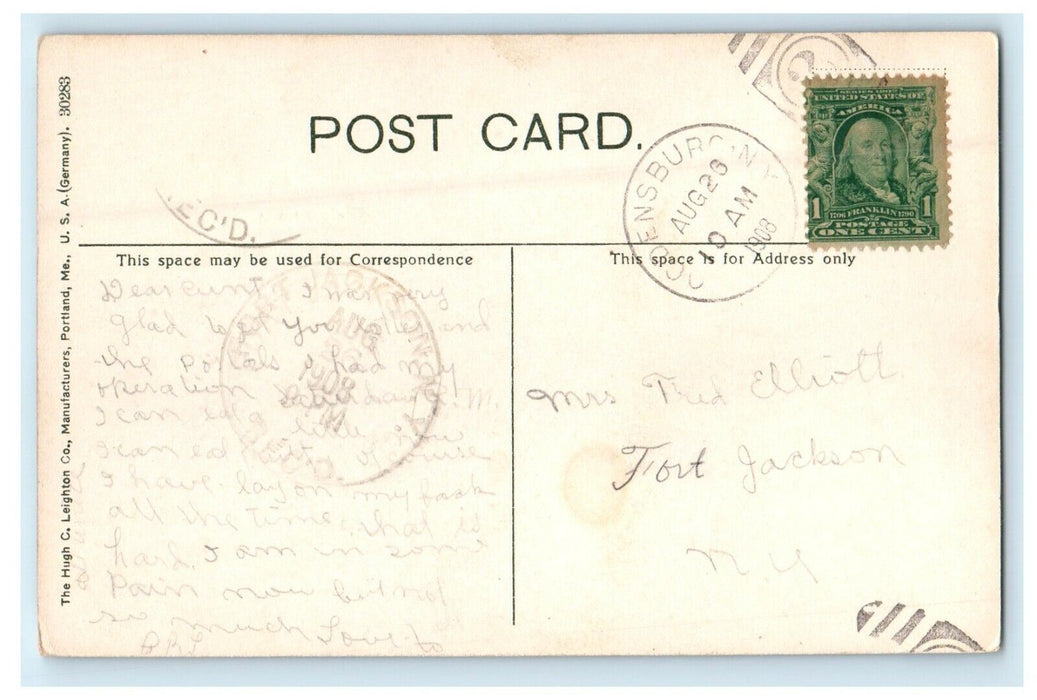 POST CARD.
The Hugh C. Leighton Co., Manufacturers, Portland, Me., U. S. A. (Germany). 30283
OGDENSBURG, N.Y.
AUG 26
10 AM
1908
SERIES 1902
UNITED STATES OF
AMERICA
1 1706 FRANKLIN 1790 1
POSTAGE
ONE CENT
REC'D.
This space may be used for Correspondence
This space is for Address only
FORT JACKSON N.Y.
AUG
26
1908
PM
REC'D.
Dear aunt I was very
glad to get you letter and
the postals I had my
operation Saturday A.M.
I can a little now
I can
I have lay on my back
all the time, that is
hard. I am in some
Pain now but not
so much Love to
Mrs Fred Elliott
Fort Jackson
N Y